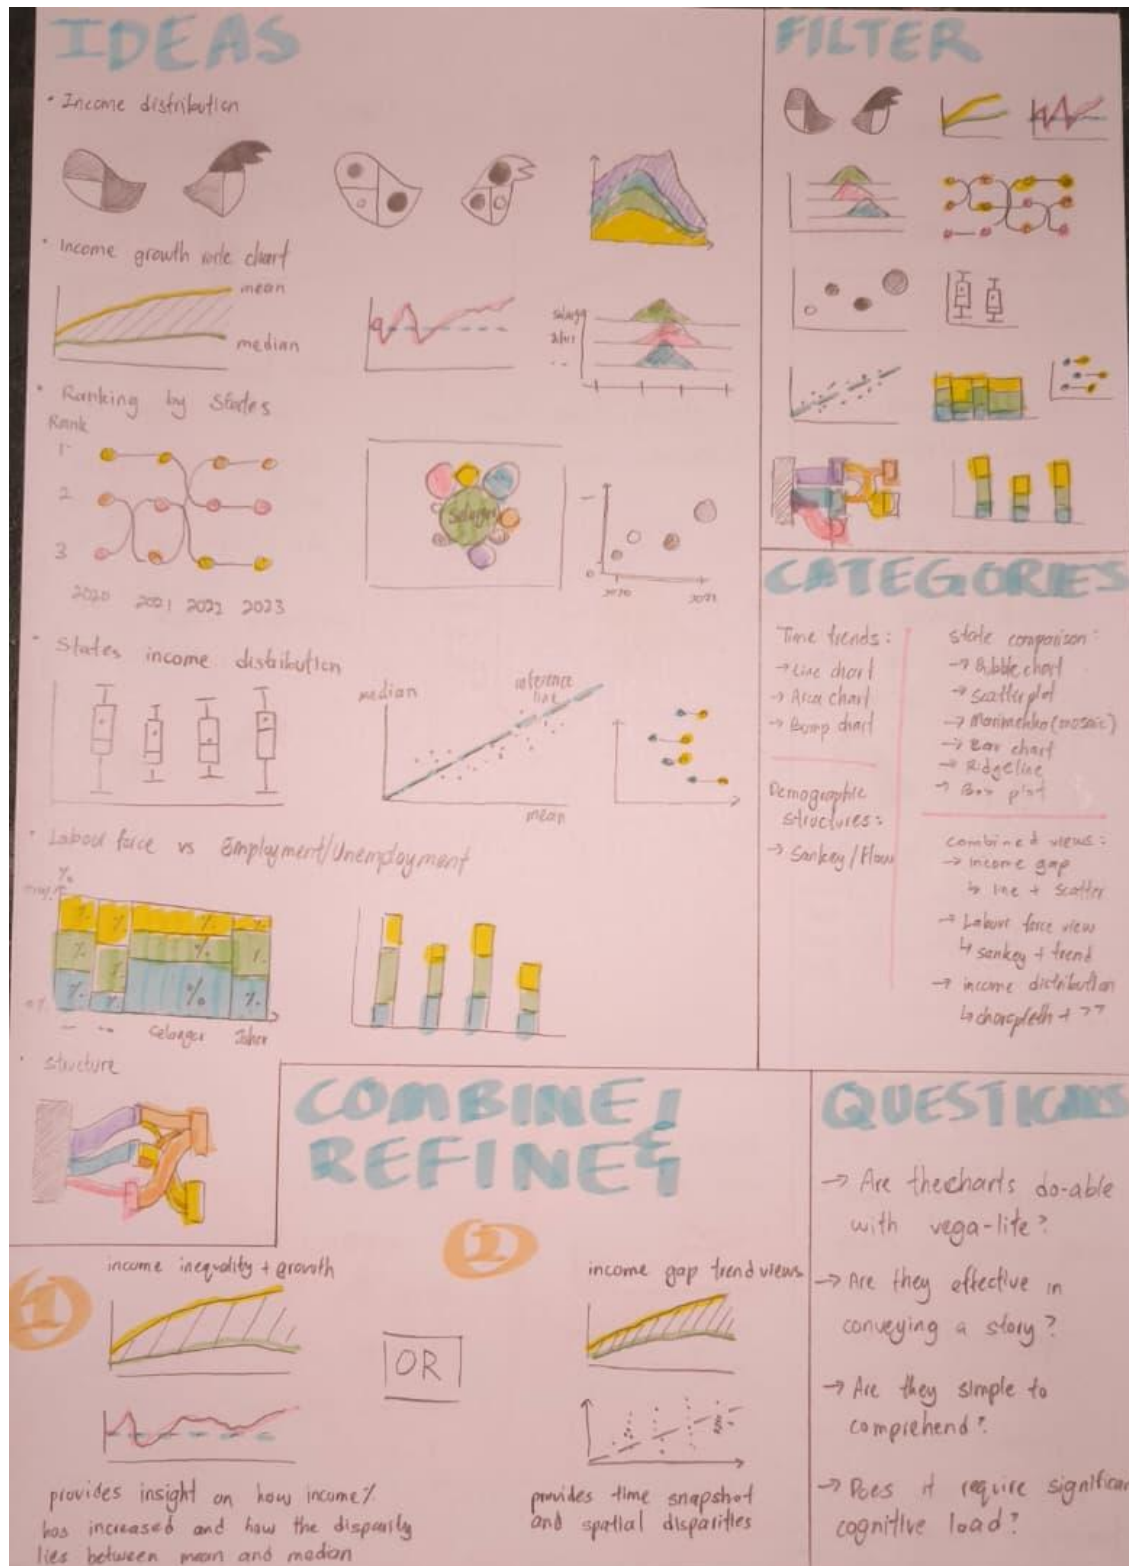 IDEAS
• Income distribution
• Income growth rate chart
mean
median
Selangor
Johor
• Ranking by States
Rank
1
2
3
2020 2021 2022 2023
Selangor
2020
• States income distribution
median
reference
line
mean
• Labour force vs Employment/Unemployment
%
%
%
%
%
%
%
%
%
Selangor
Johor
• structure
FILTER
CATEGORIES
Time trends:
→ Line chart
→ Area chart
→ Bump chart
Demographic
structures:
→ Sankey/Flow
State comparison:
→ Bubble chart
→ Scatterplot
→ Marimekko (mosaic)
→ Bar chart
→ Ridgeline
→ Box plot
combined views:
→ income gap
↳ line + scatter
→ Labour force view
↳ sankey + trend
→ income distribution
↳ choropleth + ??
COMBINE &
REFINE
1
income inequality + growth
provides insight on how income %
has increased and how the disparity
lies between mean and median
OR
2
income gap trend views
provides time snapshot
and spatial disparities
QUESTIONS
→ Are the charts do-able
with vega-lite?
→ Are they effective in
conveying a story?
→ Are they simple to
comprehend?
→ Does it require significan
cognitive load?